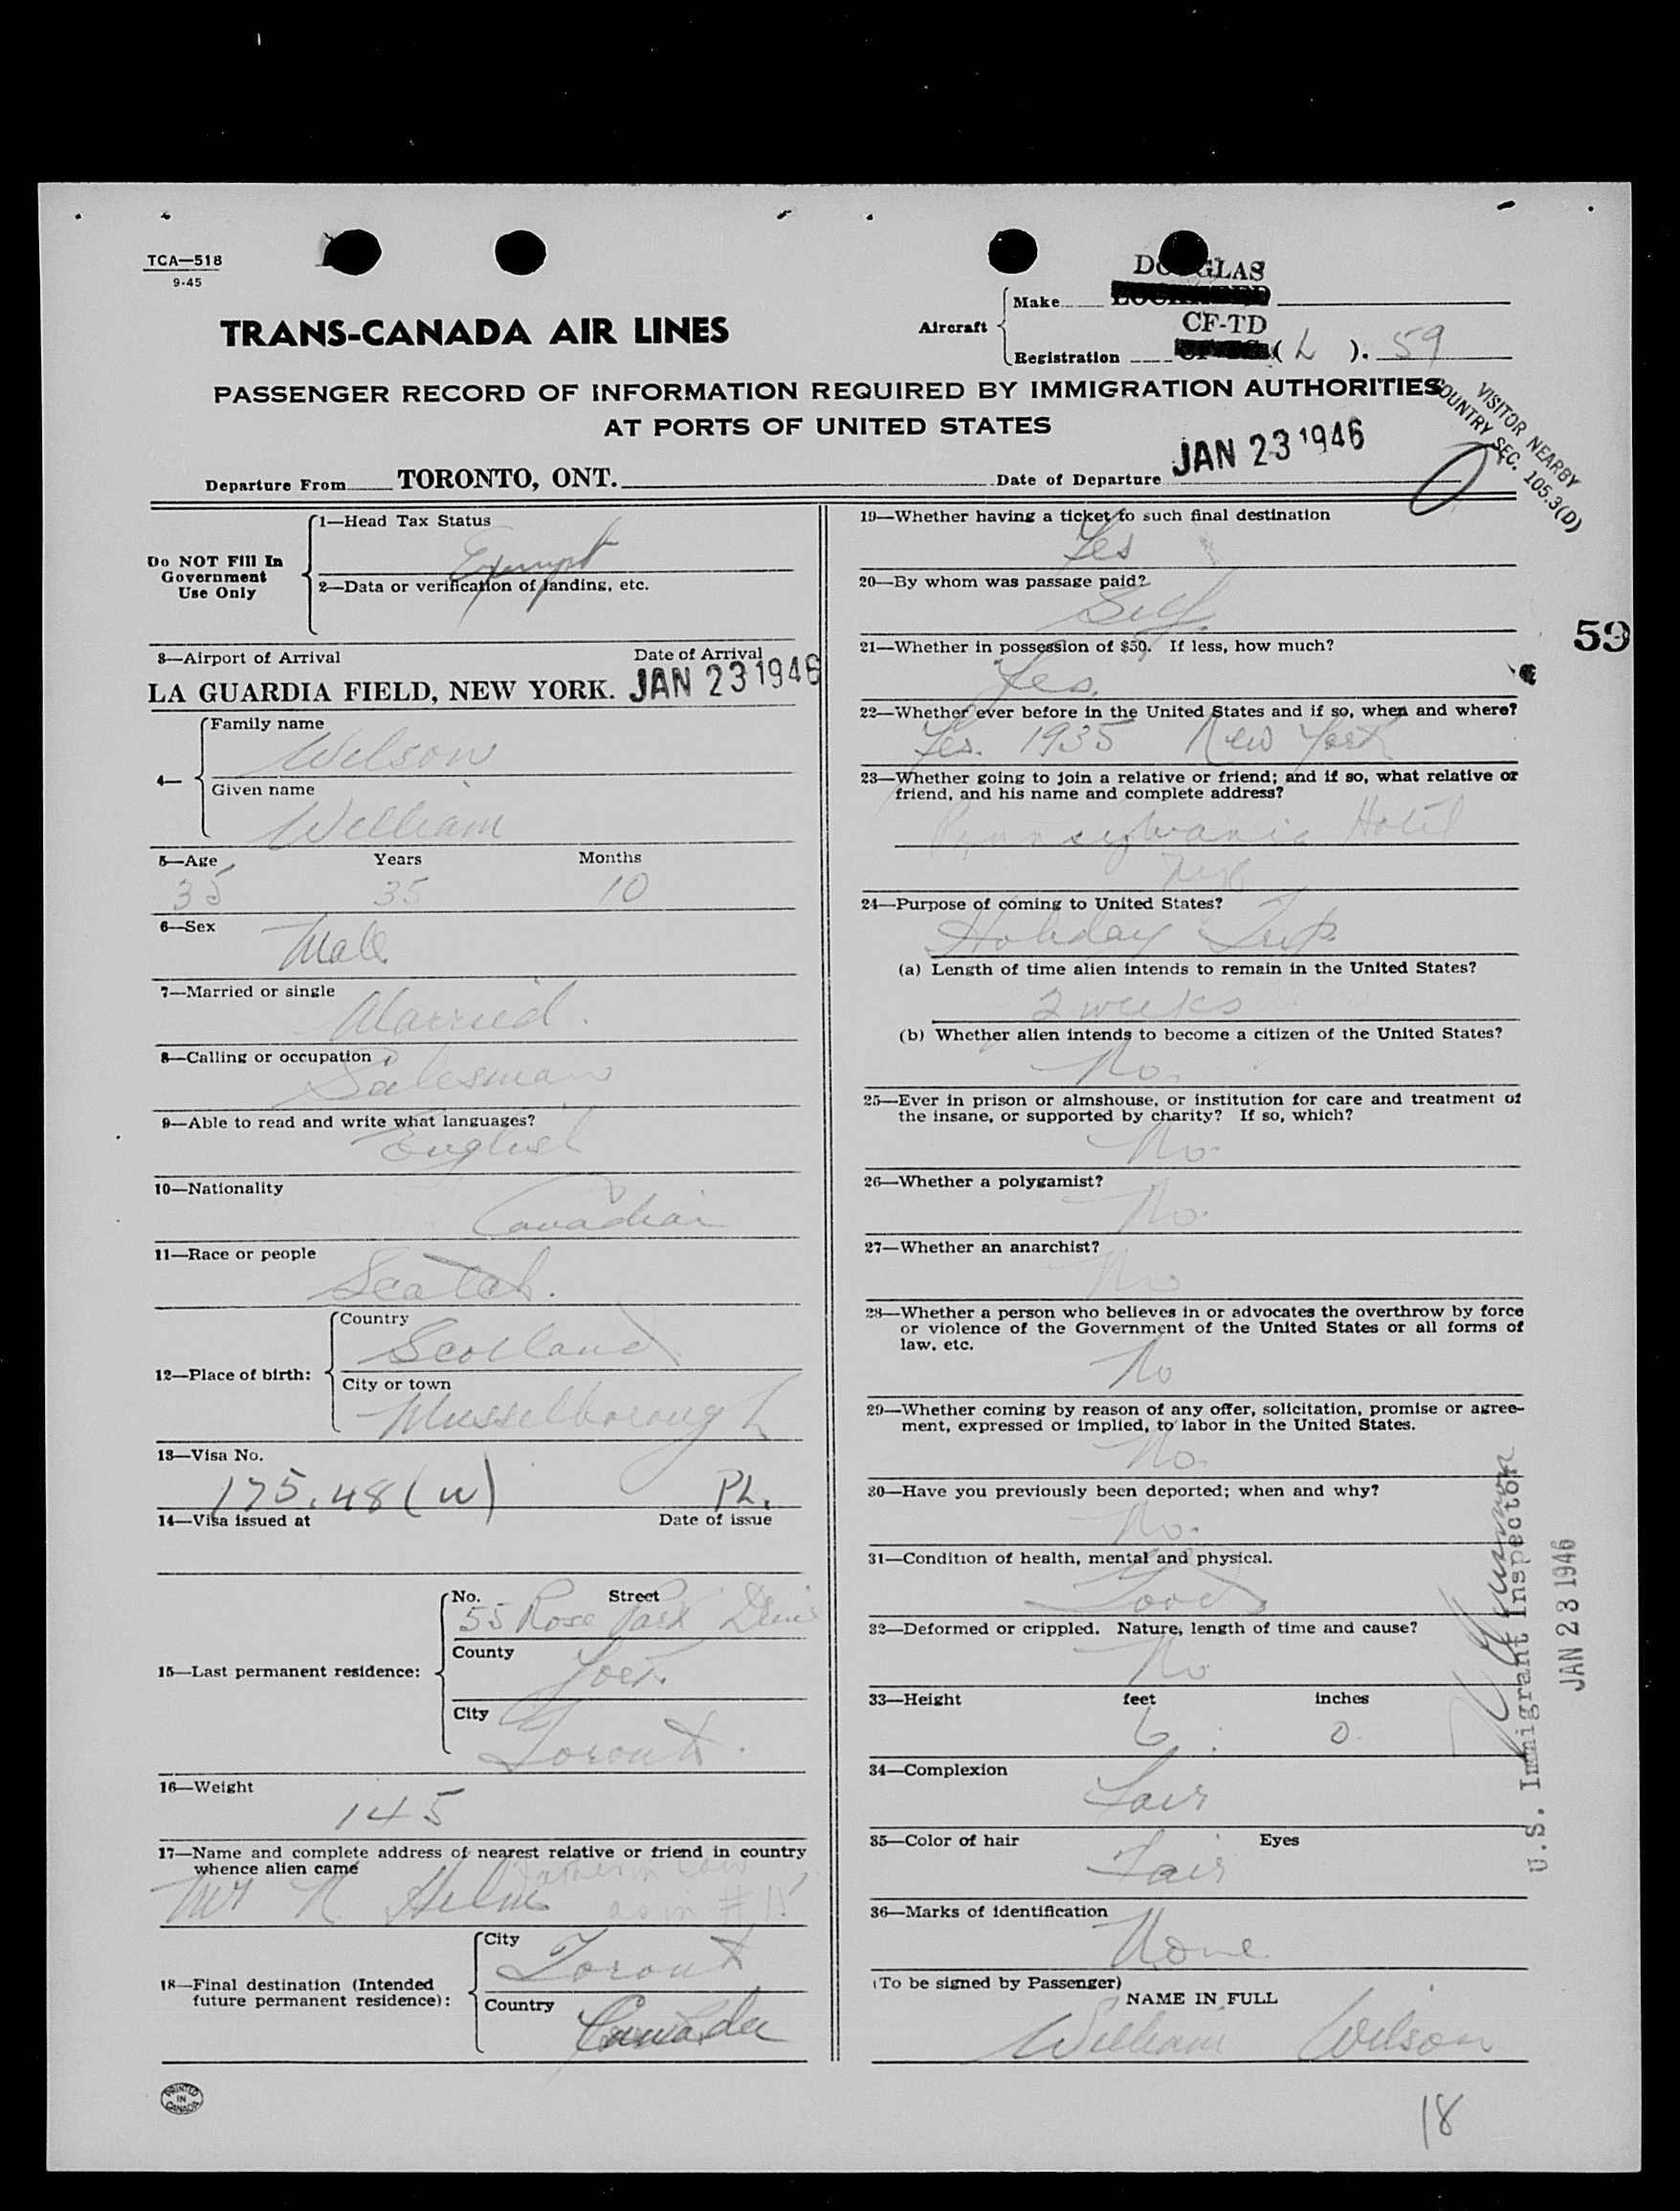 TCA—518
9-45
DOUGLAS
Aircraft
Make
CF-TD
Registration ( L ). 59
TRANS-CANADA AIR LINES
PASSENGER RECORD OF INFORMATION REQUIRED BY IMMIGRATION AUTHORITIES
AT PORTS OF UNITED STATES
VISITOR NEARBY
COUNTRY SEC. 105.3(D)
Departure From TORONTO, ONT. Date of Departure JAN 23 1946
Do NOT Fill In
Government
Use Only
1—Head Tax Status
Exempt
2—Data or verification of landing, etc.
3—Airport of Arrival Date of Arrival
LA GUARDIA FIELD, NEW YORK. JAN 23 1946
4—
Family name
Wilson
Given name
William
5—Age Years Months
35 35 10
6—Sex
Male
7—Married or single
Married.
8—Calling or occupation
Salesman
9—Able to read and write what languages?
English
10—Nationality
Canadian
11—Race or people
Scotch.
12—Place of birth:
Country
Scotland
City or town
Musselborough
13—Visa No.
175.48 (w) PL.
14—Visa issued at Date of issue
15—Last permanent residence:
No. Street
55 Rose Park Drive
County
York.
City
Toronto.
16—Weight
145
17—Name and complete address of nearest relative or friend in country
whence alien came
father in law
Mr N Helm as in # 15
18—Final destination (Intended
future permanent residence):
City
Toronto
Country
Canada
PRINTED
IN
CANADA
19—Whether having a ticket to such final destination
Yes
20—By whom was passage paid?
Self.
21—Whether in possession of $50. If less, how much?
Yes.
59
22—Whether ever before in the United States and if so, when and where?
Yes. 1935 New York
23—Whether going to join a relative or friend; and if so, what relative or
friend, and his name and complete address?
Pennsylvania Hotel
24—Purpose of coming to United States?
Holiday Trip.
(a) Length of time alien intends to remain in the United States?
2 weeks
(b) Whether alien intends to become a citizen of the United States?
No.
25—Ever in prison or almshouse, or institution for care and treatment of
the insane, or supported by charity? If so, which?
No
26—Whether a polygamist?
No.
27—Whether an anarchist?
No
28—Whether a person who believes in or advocates the overthrow by force
or violence of the Government of the United States or all forms of
law, etc.
No
29—Whether coming by reason of any offer, solicitation, promise or agree-
ment, expressed or implied, to labor in the United States.
No.
30—Have you previously been deported; when and why?
No.
31—Condition of health, mental and physical.
Good
32—Deformed or crippled. Nature, length of time and cause?
No
33—Height feet inches
6 0.
34—Complexion
Fair
35—Color of hair Eyes
Fair
36—Marks of identification
None
(To be signed by Passenger)
NAME IN FULL
William Wilson
U.S. Immigrant Inspector
JAN 23 1946
18